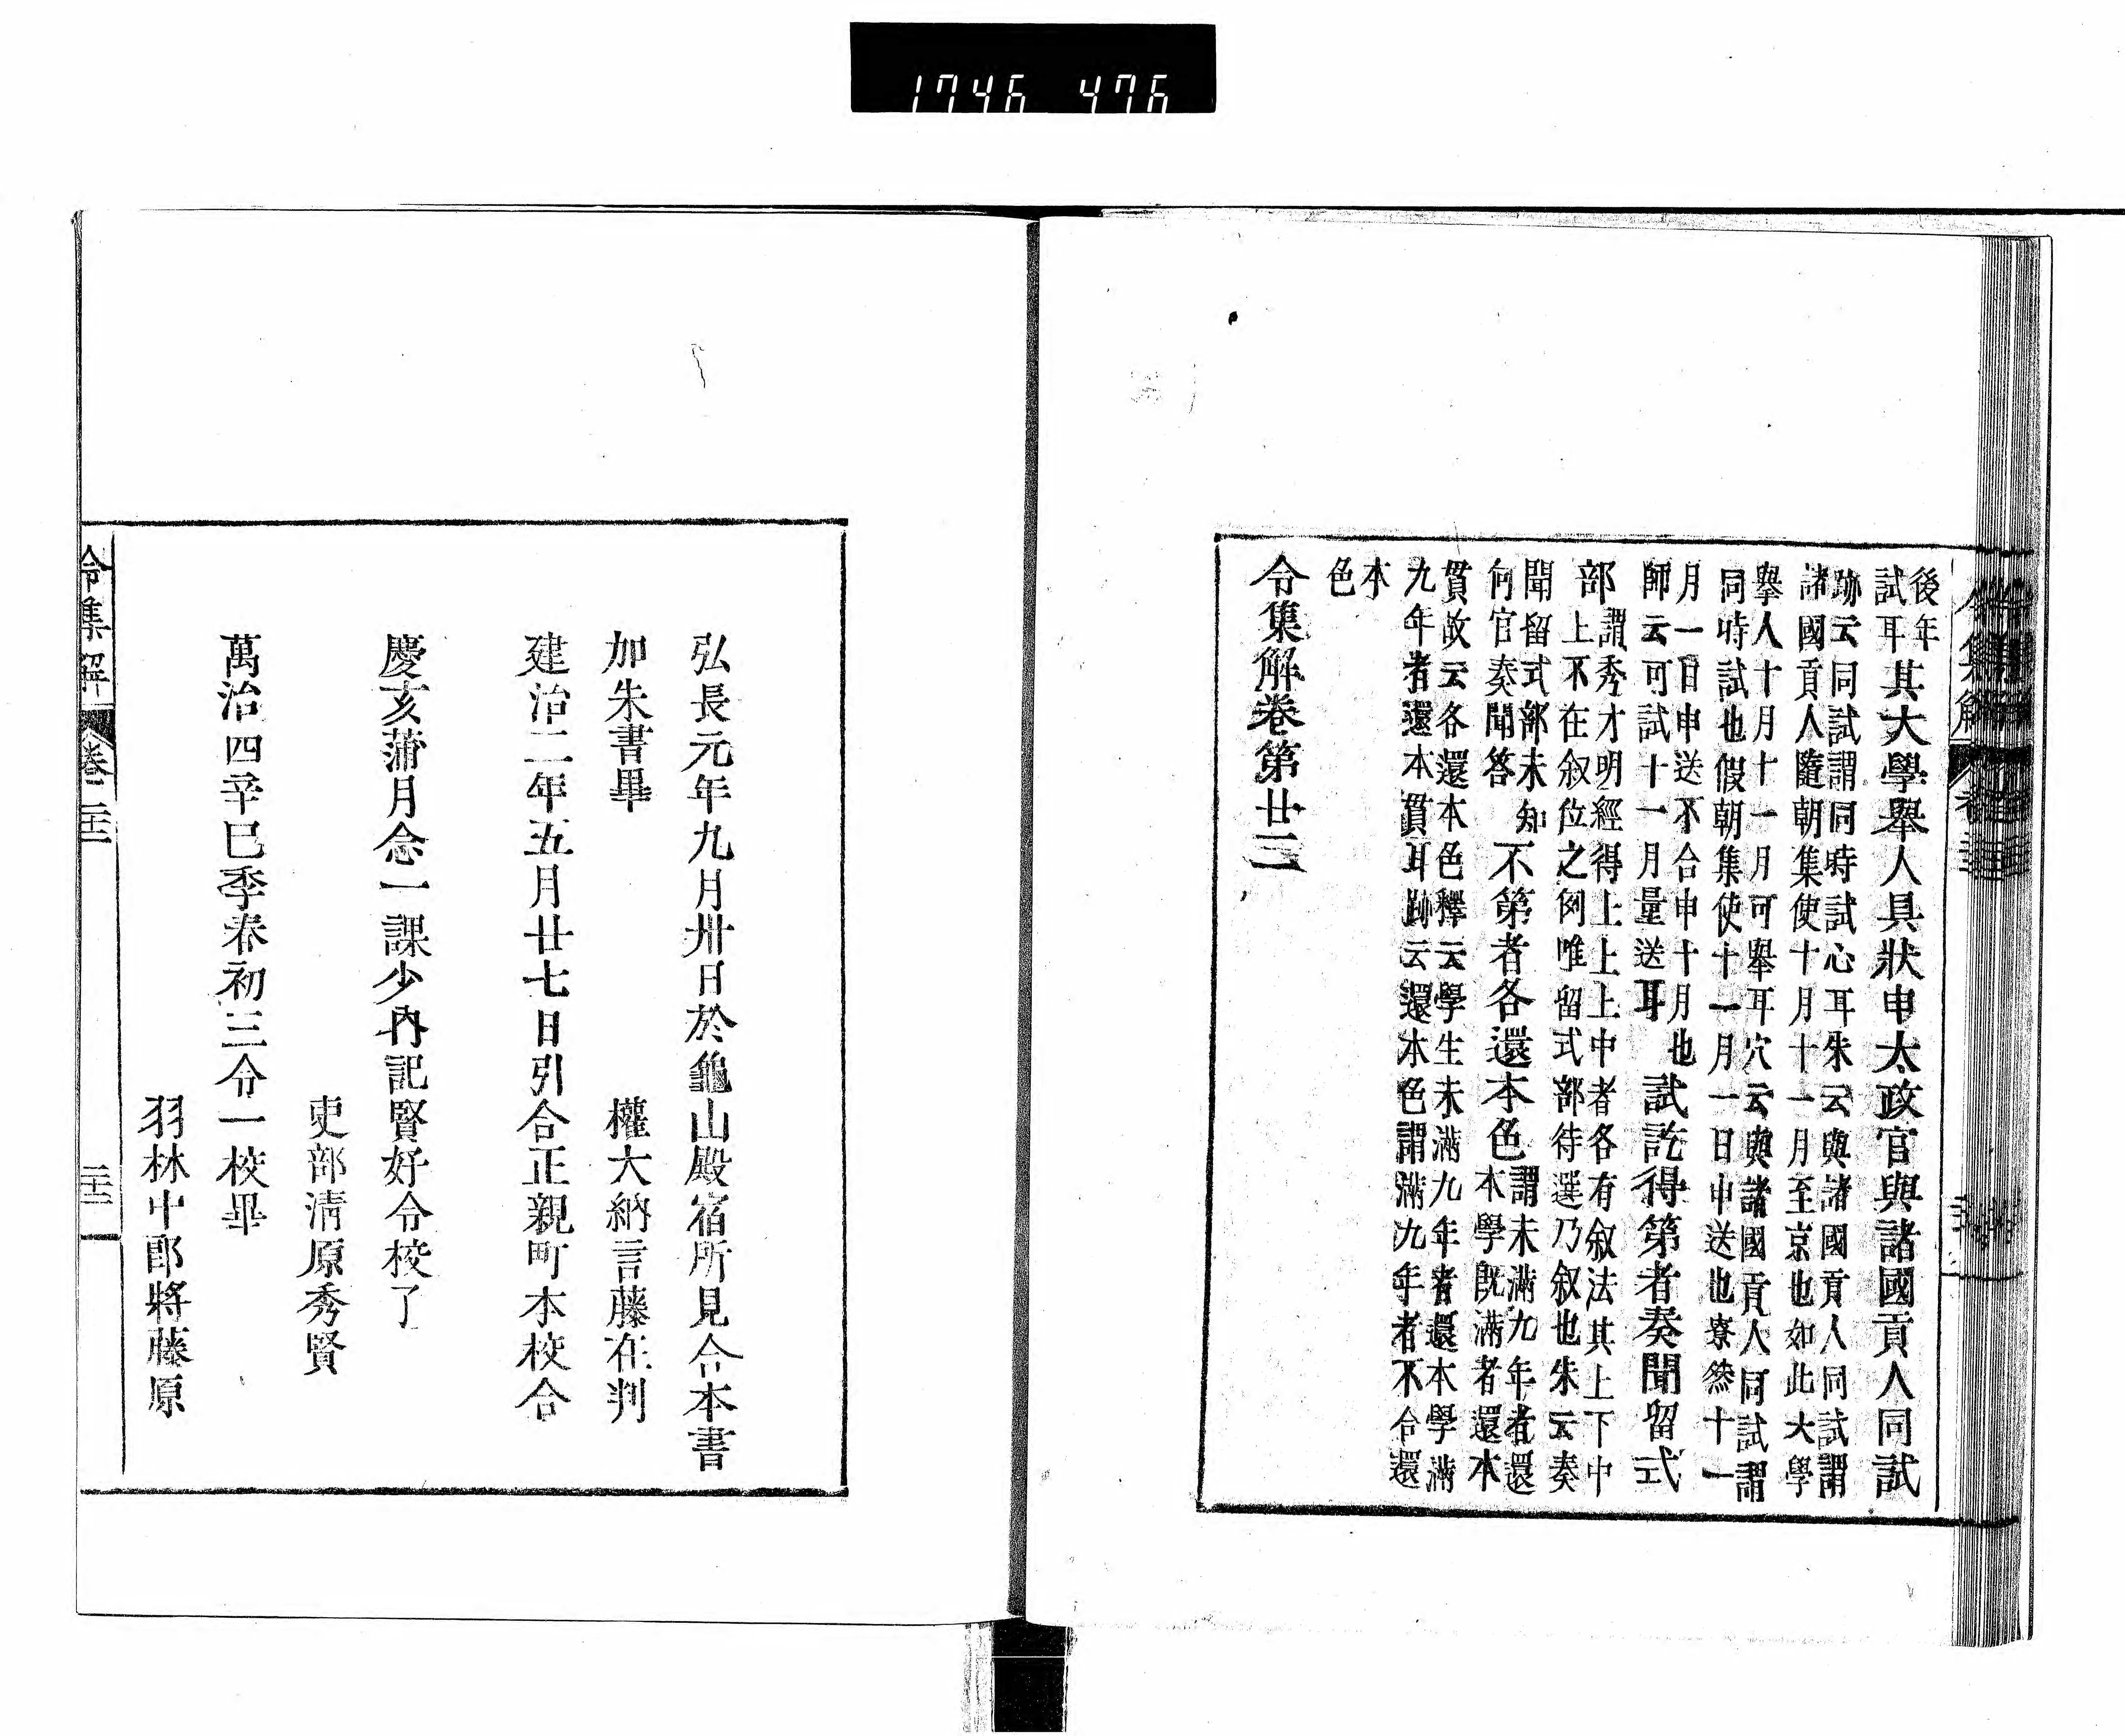 1746 476
後年
試耳
其大學舉人具狀申太政官與諸國貢人同試
跡云同試謂同時試心耳朱云與諸國貢人同試謂
諸國貢人隨朝集使十月十一月至京也如此大學
舉人十月十一月可舉耳穴云與諸國貢人同試謂
同時試也假朝集使十一月一日申送也寮然十一
月一日申送不合申十月也
師云可試十一月量送耳
試訖得第者奏聞留式
部
謂秀才明經得上上上中者各有叙法其上下中
上不在叙位之例唯留式部待選乃叙也朱云奏
聞留式部未知
何官奏聞答
不第者各還本色
謂未滿九年者還
本學既滿者還本
貫故云各還本色釋云學生未滿九年者還本學滿
九年者還本貫耳跡云還本色謂滿九年者不合還
本
色
令集解卷第廿三
弘長元年九月卅日於龜山殿宿所見合本書
加朱書畢　權大納言藤在判
建治二年五月廿七日引合正親町本校合
慶亥蒲月念一課少內記賢好令校了
吏部淸原秀賢
萬治四辛巳季春初三令一校畢
羽林中郎將藤原
令集解 卷二十三 二十二